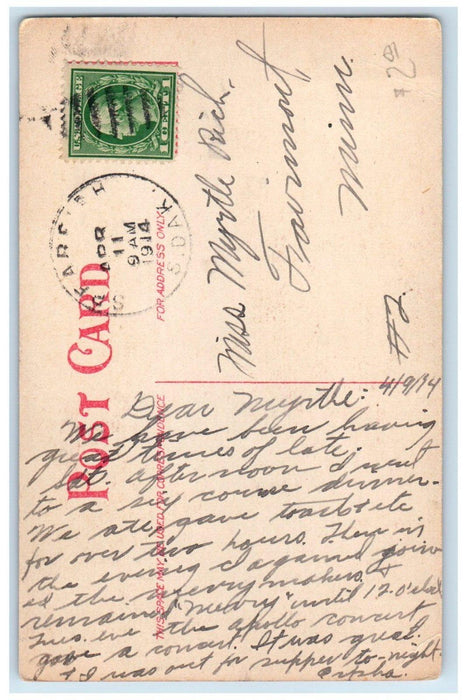 $2.00
U.S. POSTAGE
1 CENT 1
APR
11
9 AM
1914
S. DAK.
POST CARD
FOR ADDRESS ONLY.
THIS SPACE MAY BE USED FOR CORRESPONDENCE
Miss Myrtle Rich,
Fairmont,
Minn.
#2.
4/9/14
Dear Myrtle:
We have been having
great times of late.
Sat. afternoon I went
to a six course dinner.
We ate, gave toasts etc
for over two hours. Then in
the evening I again
as the merrymakers &
remained "merry" until 12 O'clock
Tues. eve the apollo concert
gave a concert. It was great.
I was out for supper to-night.